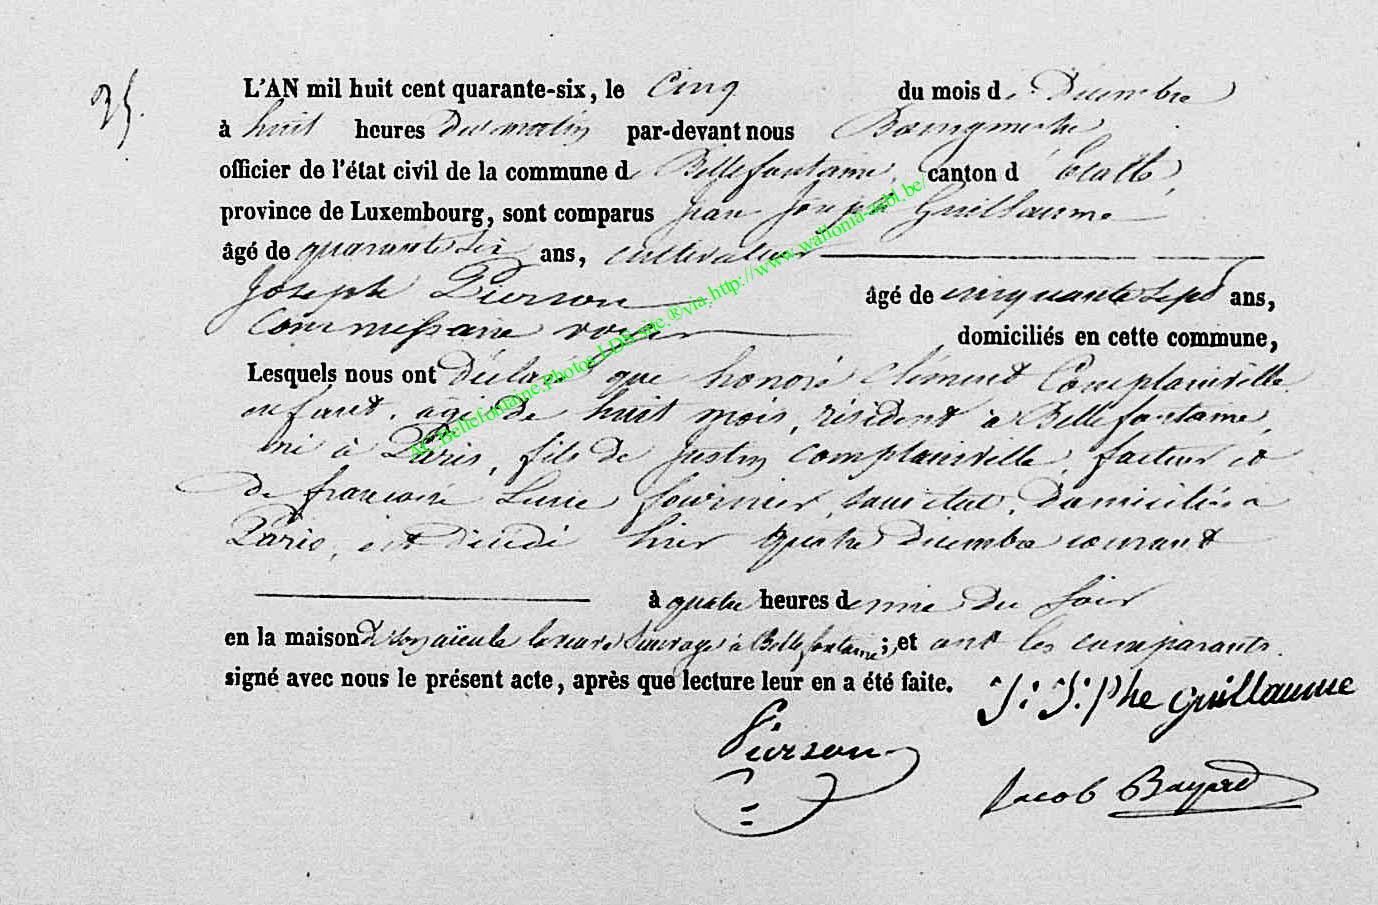 35.
L'AN mil huit cent quarante-six, le Cinq du mois de Décembre
à huit heures du matin par-devant nous Bourgmestre
officier de l'état civil de la commune de Bellefontaine, canton d'Etalle,
province de Luxembourg, sont comparus Jean Joseph Guillaume
âgé de quarante six ans, cultivateur
Joseph Pierson âgé de cinquante sept ans,
Commissaire voyer domiciliés en cette commune,
Lesquels nous ont déclaré que honoré Clément Complainville
enfant, agé de huit mois, résident à Bellefontaine,
né à Paris, fils de Justin Complainville, facteur et
de françoise Lucie fournier, sans état, domiciliés à
Paris, est décédé hier quatre Décembre courant
à quatre heures demie du soir
en la maison de son aïeule la veuve Sauvage à Bellefontaine ; et ont les comparants
signé avec nous le présent acte, après que lecture leur en a été faite.
J: J:phe guillaume
Pierson
Jacob Bayard
AC Bellefontaine.Photos LDB site ®via http://www.wallonia-asbl.be/